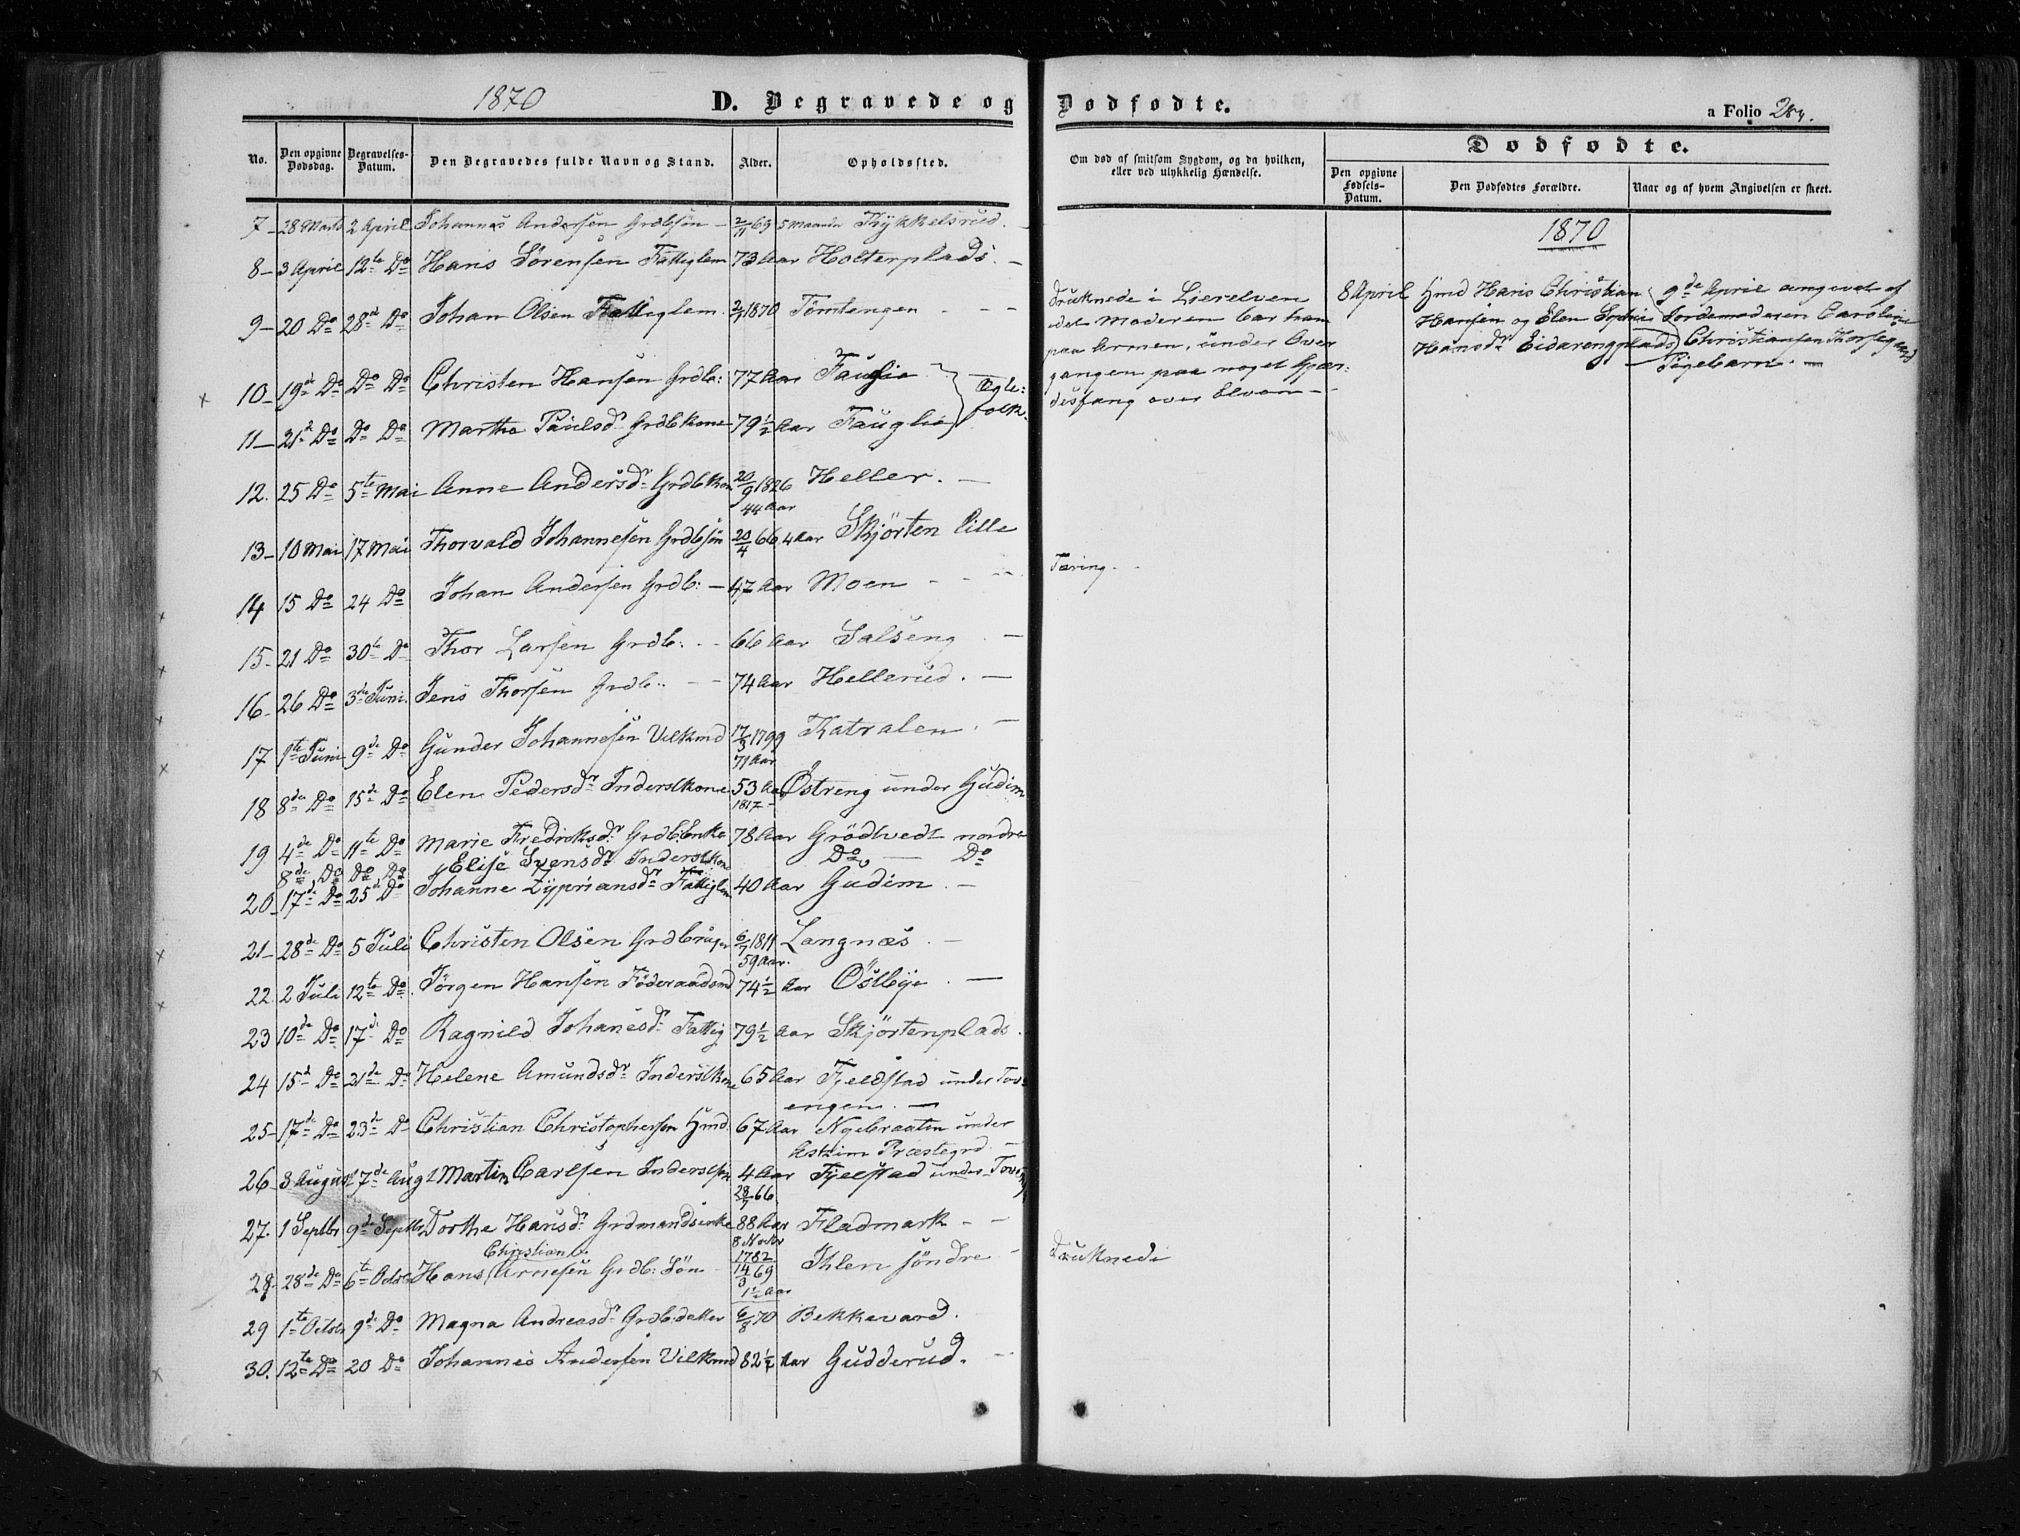 1870 D. Begravede og Dødfødte. a Folio
No. Den opgivne Dødsdag. Begravelses-Datum. Den Begravedes fulde Navn og Stand. Alder. Opholdssted.
Om død af smitsom Sygdom, og da hvilken, eller ved ulykkelig Hændelse.
Dødfødte.
Den opgivne Fødsels-Datum. Den Dødfødtes Forældre. Naar og af hvem Angivelsen er skeet.
7 - 28 Marts 2 April Johannes Andersen Grdbsøn - 2/11 69 5 Maaneder Thykkelsrud.
8 - 3 April 12te Do Hans Sørensen Fattiglem 73 Aar Holterplads. -
9 - 20 Do 28de Do Johan Olsen Fattiglem 2/1 1870 Tomtengen - - -
10 - 19de Do Do Do Christen Hansen Grdb: 77 Aar Fauglie } Ægte:
11 - 21de Do Do Do Marthe Paulsdr Grdbkone 79 1/2 Aar Fauglie } folk.
12. 25 Do 5te Mai Anne Andersdr Grdbkon 20/9 1826 Heller. -
44 Aar
13 - 10 Mai 17 Mai Thorvald Johannesen Grdbsøn 20/4 66 4 Aar Skjørten lille
14 15 Do 24 Do Johan Andersen Grdb: - 47 Aar Moen - - -
15 - 21 Do 30te Do Thor Larsen Grdb: - - 66 Aar Salseng - -
16 - 26 Do 3de Juni Jens Thorsen Grdb. - - 74 Aar Hellerud. -
17 1te Juni 9de Do Gunder Johannesen Vilkmd 17/3 1799 Katralen. -
71 Aar
18 8de Do 15de Do Elen Pedersdr Inderstkone 53 Aar Østreng under Gudim
1817 -
19 4de Do 11te Do Marie Fredriksdr Grdb.Enke 78 Aar Grødtvedt nordre
8de Do Do Do Elise Svensdr Inderstkon Do - Do
20 17de Do 25de Do Johanne Zypriansdr Fattiglem 40 Aar Gudim. -
21 - 28de Do 5 Juli Christen Olsen Grdbruger 6/7 1811 Langnæs. -
59 Aar.
22. 2 Juli 12te Do. Jørgen Hansen Føderaadsmd 74 1/2 Aar Østbye. -
23 10de Do 17de Do Ragnild Johanesdr Fattig 79 1/2 Aar Skjørtenplads.
24 15d Do 21de Do Helene Amundsdr Inderstkone 65 Aar Fjeldstad under Tov
engen. -
25 - 17de Do 23de Do Christian Christophersen Hmd. 67 Aar Nyebraaten under
Askim Præstegrd. -
26 - 3 August 17de Aug Martin Carlsen Inderstsøn 4 Aar Fjelstad under Toveng
28/7 66
27. 1 Septbr 9de Septbr Dorthe Hansdr Grdmandsenke 88 Aar Fladmark - -
8 Novbr
1782
Christian
28. 28de Do 6te Octbr Hans Arnesen Grdb: Søn 14/3 69 Ihlen søndre -
1 1/2 Aar
29 1te Octbr 9de Do Magna Andreasdr Grdb.datter 6/8 70 Bekkevard.
30. 12te Do 20 Do Johannes Andersen Vilkmd 82 1/2 Aar Gudderud. -
druknede i Lierelven
idet Moderen bar ham
paa Armen, under Over
gangen paa noget Gjær:
desfang over Elven -
Tæring. -
druknede
1870
8 April Hmd Hans Christian
Hansen og Elen Sophie
Hansdr Eidarengplads
9de April angivet af
Jordemoderen Caroline
Christiansen Thorseg
Pigebarn. -